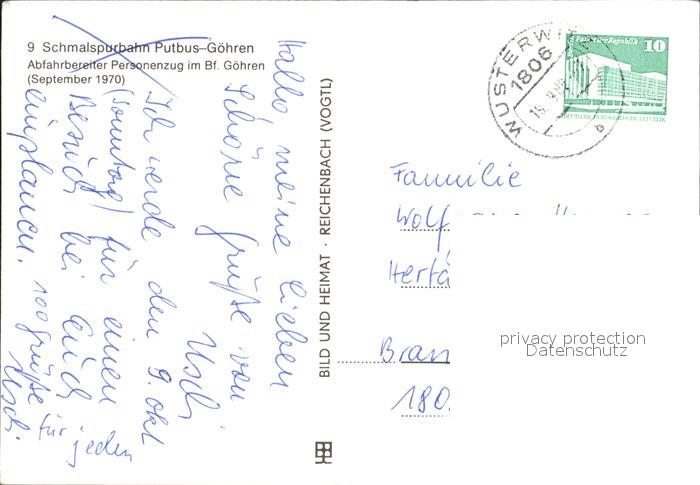 9 Schmalspurbahn Putbus–Göhren
Abfahrbereiter Personenzug im Bf. Göhren
(September 1970)
Hallo, meine lieben
Schöne Grüße von
Uschi
Ich werde den 9. Okt
(Sonntag) für einen
Besuch bei Euch
einplanen. 100 Grüße für jeden
Uschi
BILD UND HEIMAT · REICHENBACH (VOGTL)
WUSTERWITZ
1806
Palast der Republik
10
DEUTSCHE DEMOKRATISCHE REPUBLIK
Familie
Wolf
Hertä
Bran
180
privacy protection
Datenschutz